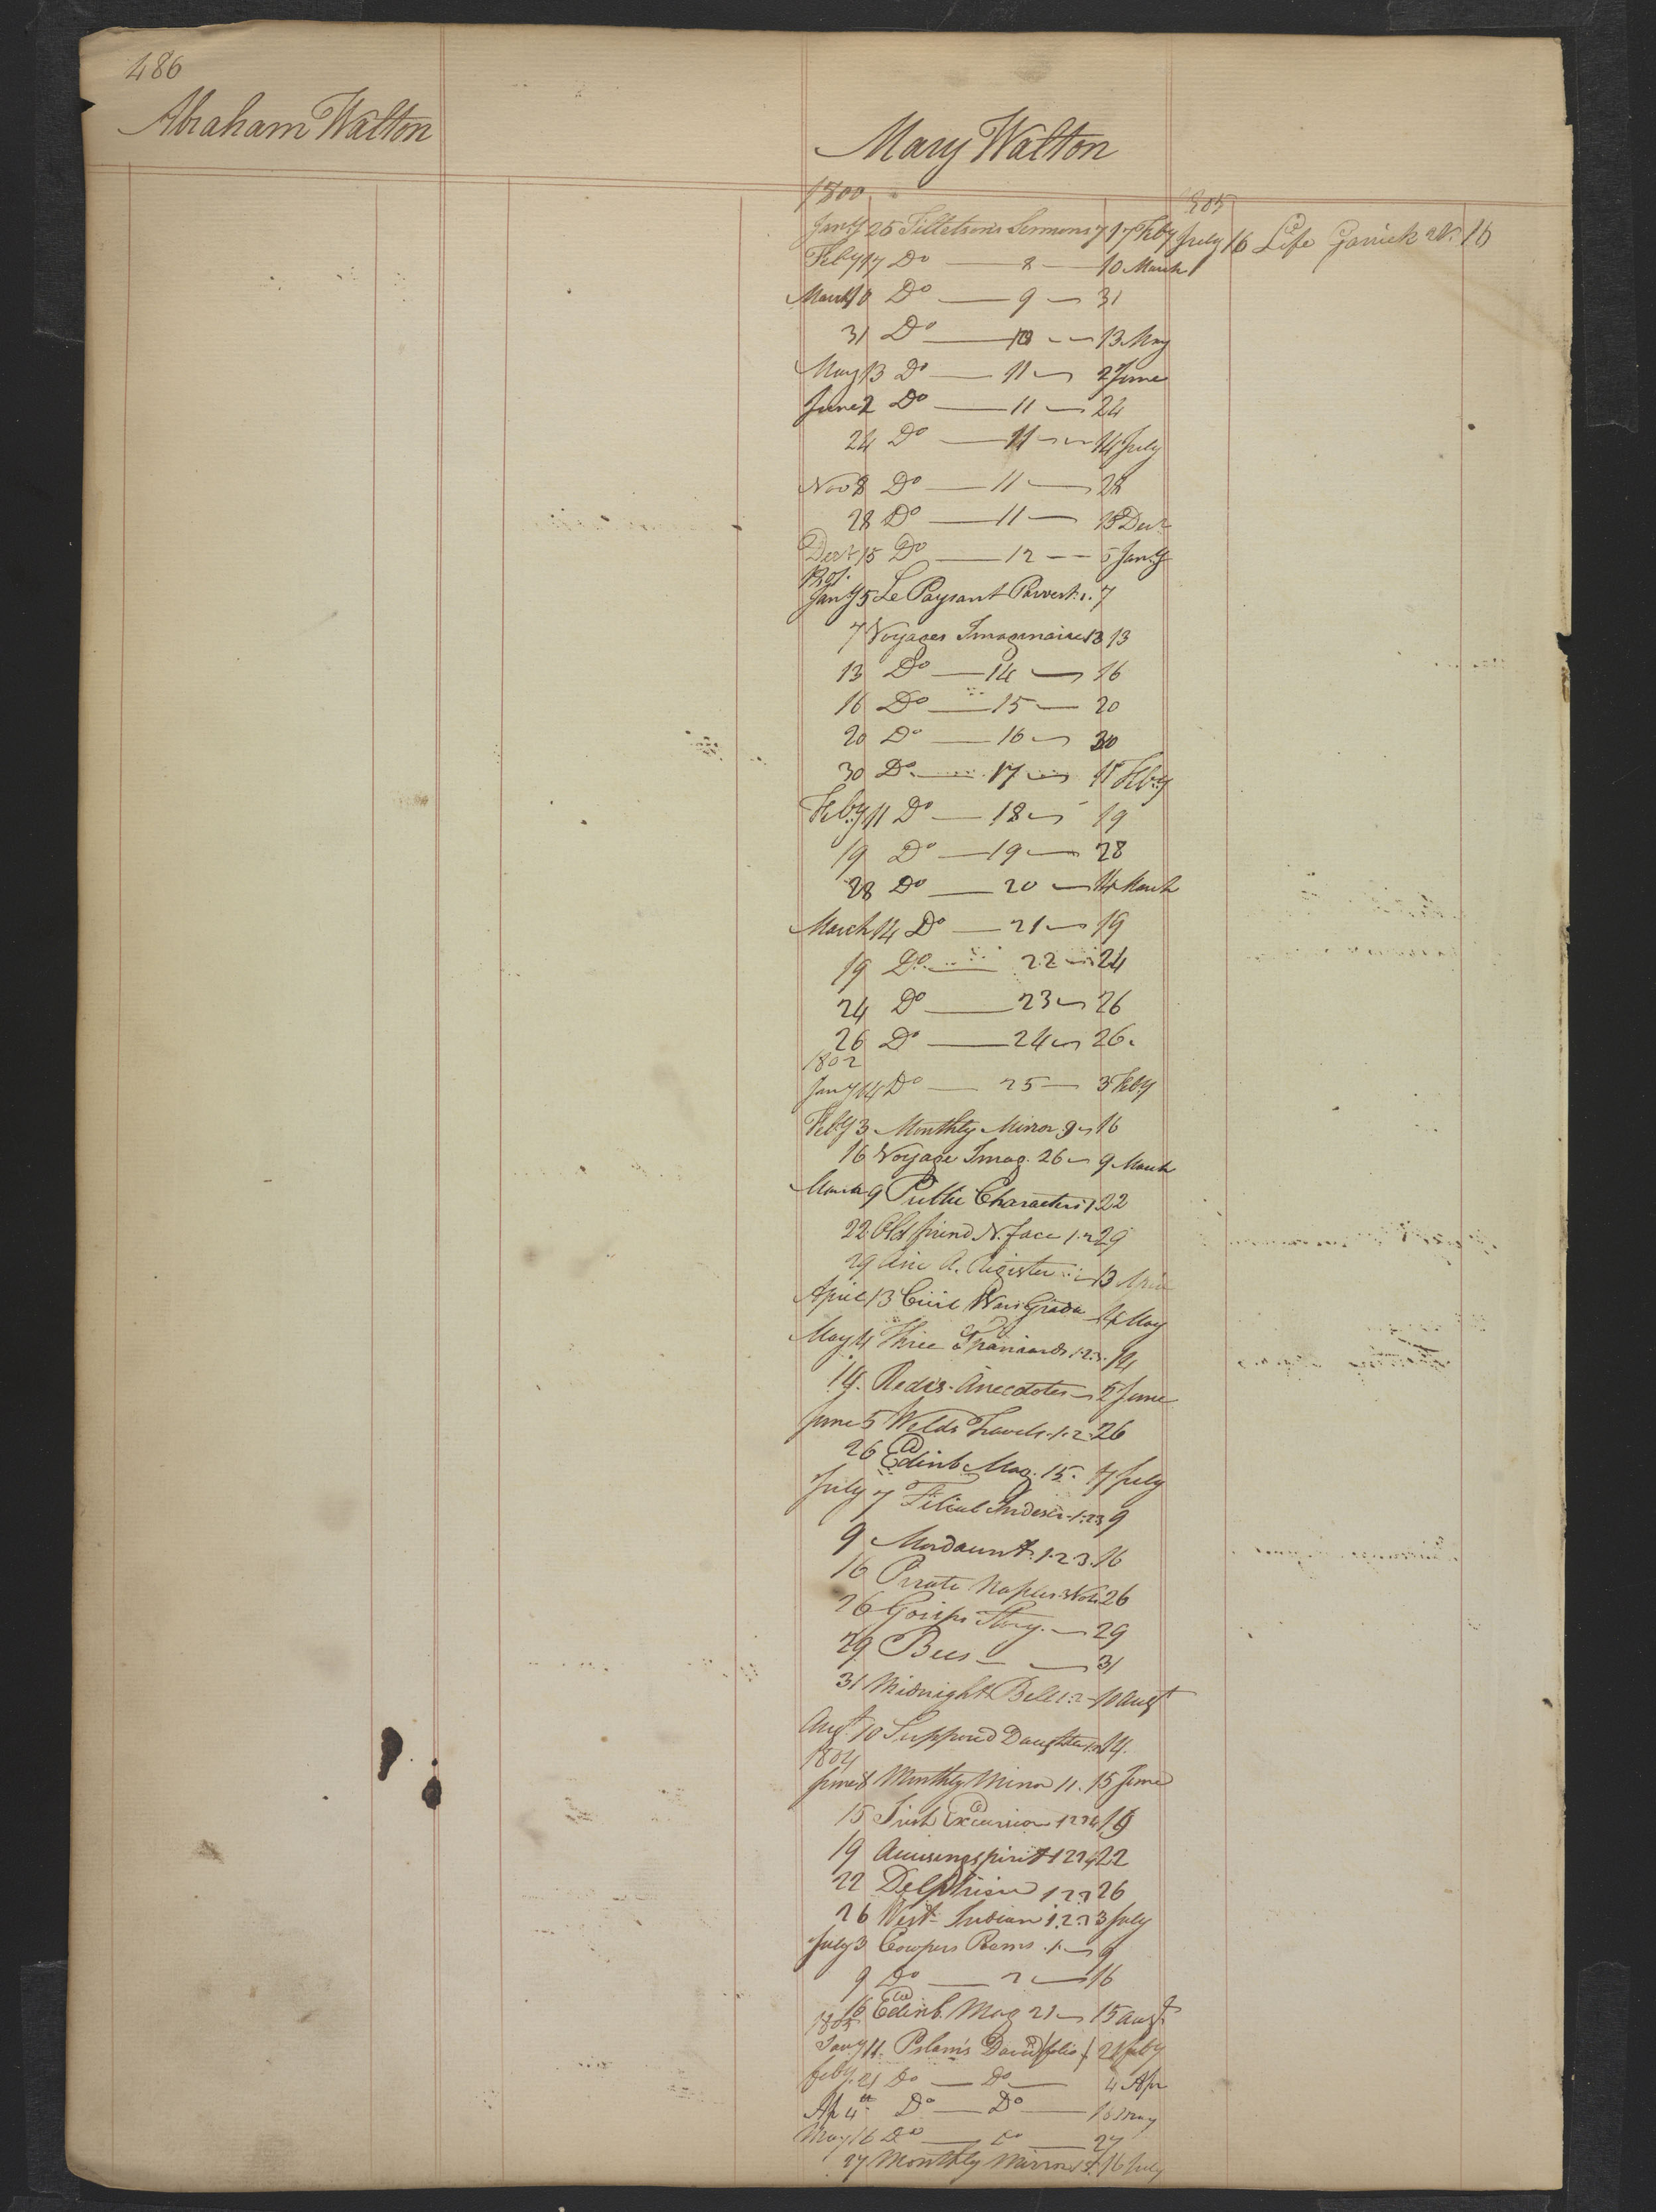 486
Abraham Walton
Mary Walton
1800
Jany 25 Tilletsons Sermons 7 17 Feby
Feby 17 Do — 8 — 10 March
March 10 Do — 9 — 31
31 Do — 10 — 13 May
May 13 Do — 11 — 2 June
June 2 Do — 11 — 24
24 Do — 11 — 14 July
Nov 8 Do — 11 — 28
28 Do — 11 — 15 Decr
Decr 15 Do — 12 — 5 Jany
1801
Jany 5 Le Paysant Parvert. 1. 7
7 Voyages Imaginaires 13 13
13 Do — 14 — 16
16 Do — 15 — 20
20 Do — 16 — 30
30 Do — 17 — 11 Feby
Feby 11 Do — 18 — 19
19 Do — 19 — 28
28 Do — 20 — 14 March
March 14 Do — 21 — 19
19 Do — 22 — 24
24 Do — 23 — 26
26 Do — 24 — 26.
1802
Jany 14 Do — 25 — 3 Feby
Feby 3 Monthly Mirror 9 — 16
16 Voyage Imag. 26 — 9 March
March 9 Public Characters 1 22
22 Old friend N. face 1.2 29
29 Ann A. Register — 13 April
April 13 Civil Wars Grada — 4 May
May 4 Three Spaniards 1.2.3. 14
14. Redes Anecdotes — 5 June
June 5 Welds Travels. 1.2. 26
26 Edinb Mag. 15. 7 July
July 7 Filial Indescr. 1.2.3 9
9 Mordaunt. 1.2.3. 16
16 Pirate Naples. 3 Vols 26
26 Gosips Story. — 29
29 Bees — — 31
31 Midnight Bell 1.2 — 10 Augt
Augt. 10 Supposed Daughter 1.2.3 14.
1804
June 8 Monthly Mirror 11. 15 June
15 Irish Excursion 1234 19
19 Aceusing spirit 1234 22
22 Delphine 1.2.3 26
26 West Indian 1.2.3 3 July
July 3 Cowpers Poems. 1. — 9
9 Do — 2 — 16
16 Edinb. Mag 21 — 15 Augt
1805
Jany 11. Pslam's David folio 21 Feby
Feby. 21 Do — Do — 4 Apr
Ap 4th Do — Do — 16 May
May 16 Do — Do — 27
27 Monthly Mirror 5. 16 July
1805
July 16 Life Garrick 2V. 16